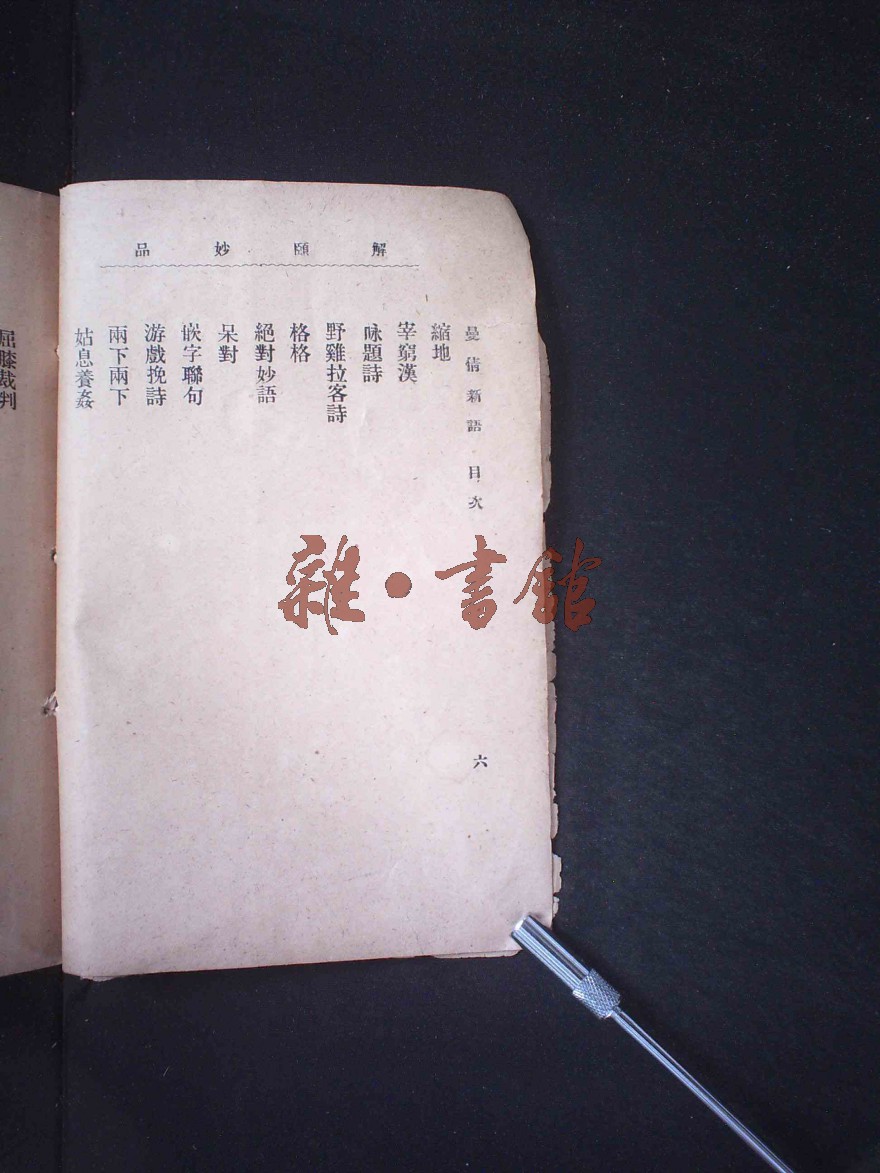 解頤妙品
曼倩新語 目次
六
縮地
宰窮漢
咏題詩
野雞拉客詩
格格
絕對妙語
呆對
嵌字聯句
游戲挽詩
兩下兩下
姑息養姦
屈膝裁判
雜·書館